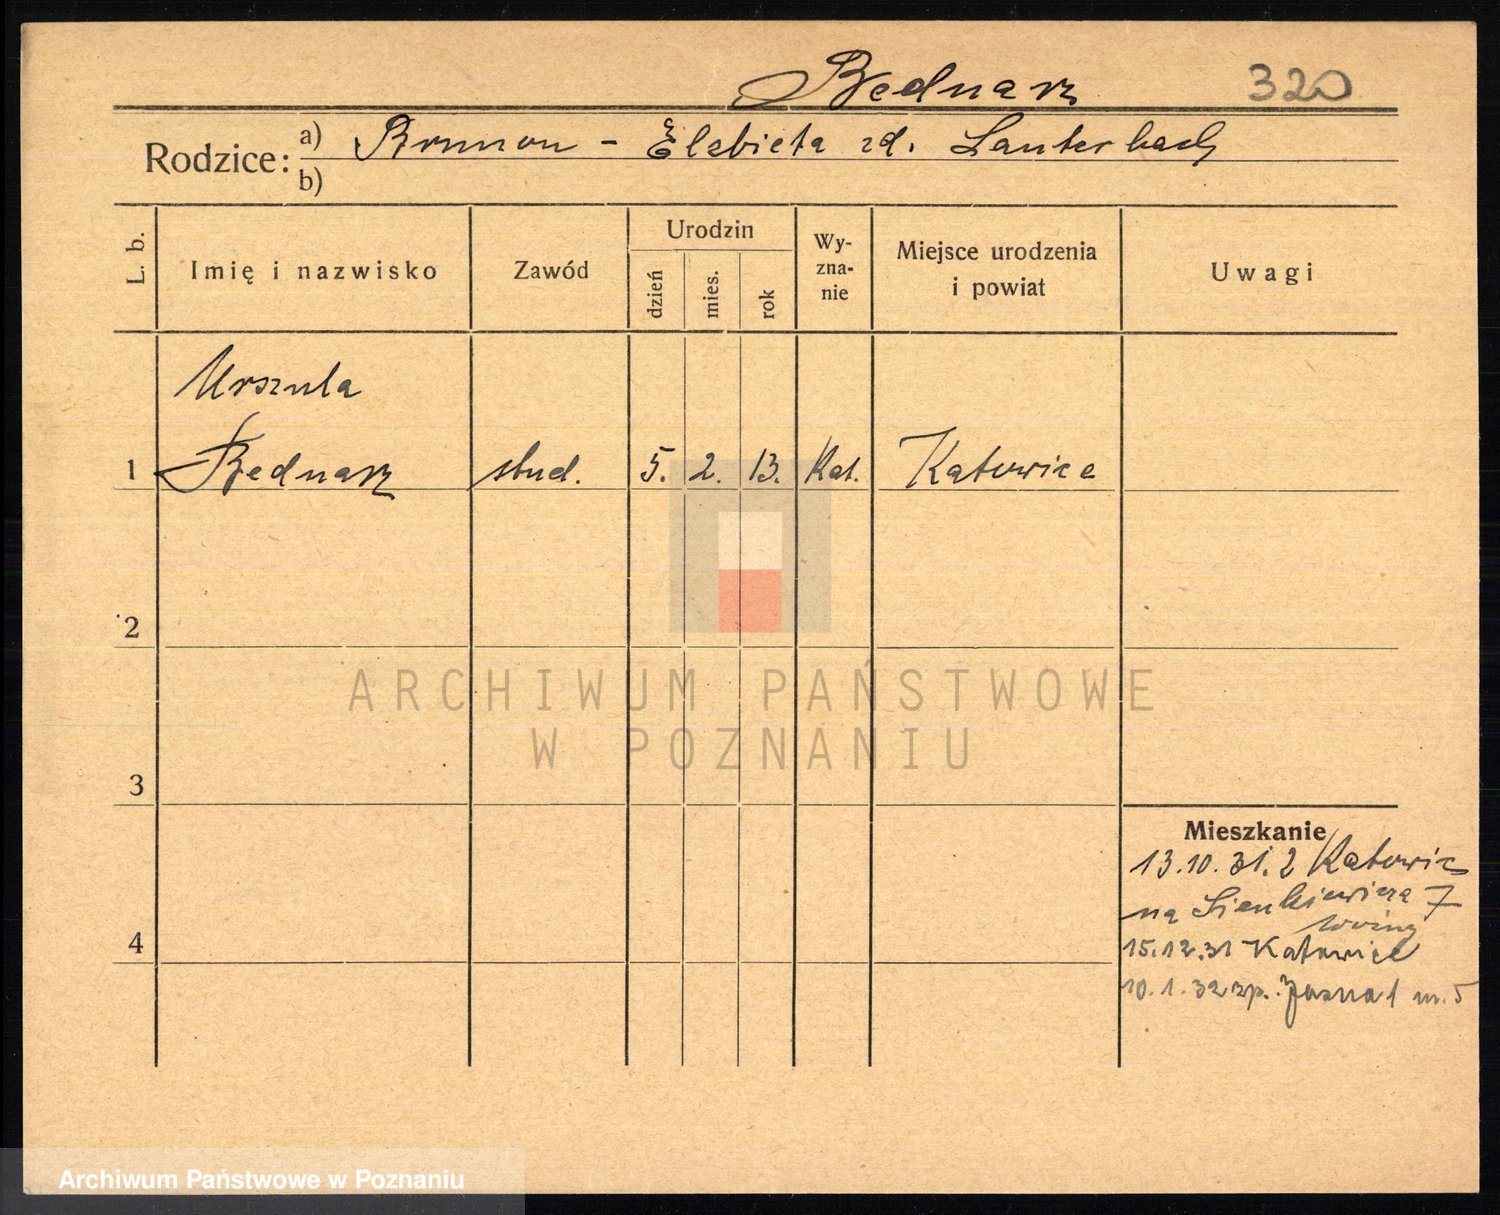 Bednarz 320
Rodzice: a) Brunon - Elżbieta zd. Lauterbach
b)
L. b. Imię i nazwisko Zawód Urodzin dzień mies. rok Wyznanie Miejsce urodzenia i powiat Uwagi
Urszula
1 Bednarz stud. 5. 2. 13. Kat. Katowice
2
ARCHIWUM PAŃSTWOWE
W POZNANIU
3
Mieszkanie
13.10.31. z Katowic
na Sienkiewicza 7
4
15.12.31 Katowice
10.1.32 zp. Jasna 1 m. 5
Archiwum Państwowe w Poznaniu